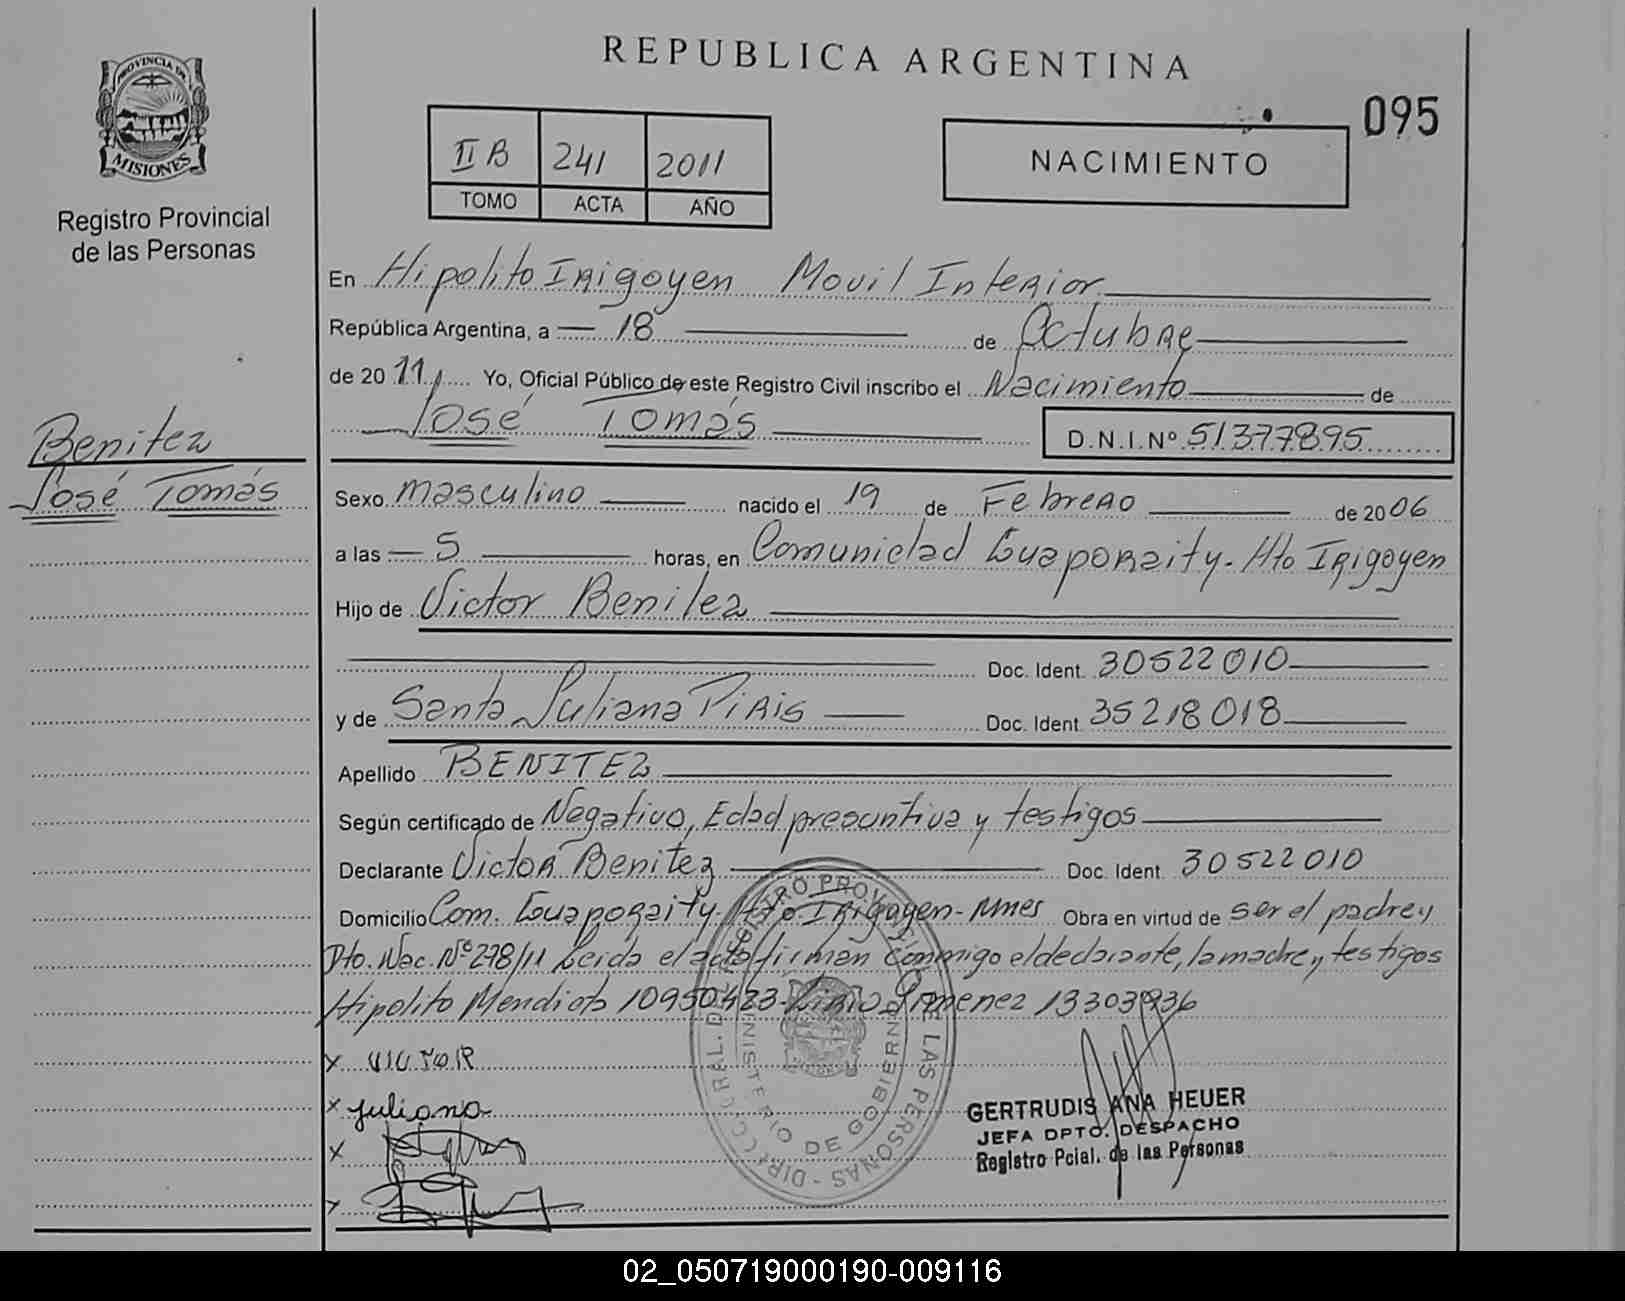 REPUBLICA ARGENTINA
095
PROVINCIA DE
MISIONES
Registro Provincial
de las Personas
II B 241 2011
TOMO ACTA AÑO
NACIMIENTO
En Hipolito Irigoyen Movil Interior
República Argentina, a 18 de Octubre
de 2011 Yo, Oficial Público de este Registro Civil inscribo el Nacimiento de
José Tomás D.N.I.Nº 51377895
Benitez
José Tomás
Sexo masculino nacido el 19 de Febrero de 2006
a las 5 horas, en Comunidad Guaporaity - Hto Irigoyen
Hijo de Victor Benitez
Doc. Ident. 30522010
y de Santa Juliana Piris Doc. Ident. 35218018
Apellido BENITEZ
Según certificado de Negativo, Edad presuntiva y testigos
Declarante Victor Benitez Doc. Ident. 30522010
Domicilio Com. Guaporaity - Hto. Irigoyen - Mnes Obra en virtud de ser el padre y
Dto. Nac. Nº 278/11 Leida el acta firman conmigo el declarante, la madre y testigos
Hipolito Mendiola 10950423 - Jimenez 13303936
x VICTOR
x Juliana
x
x
DIRECC. GRAL. DEL REGISTRO PROVINCIAL DE LAS PERSONAS
MINISTERIO DE GOBIERNO
GERTRUDIS ANA HEUER
JEFA DPTO. DESPACHO
Registro Pcial. de las Personas
02_050719000190-009116